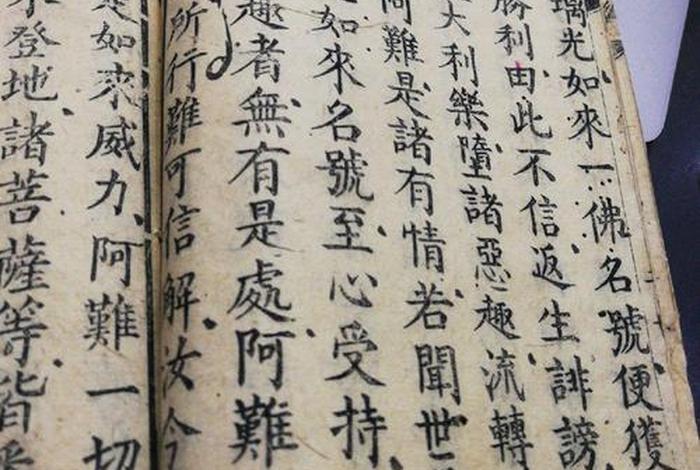 璃光如來一佛名號便獲
勝利由此不信返生誹謗
大利樂墮諸惡趣流轉
阿難是諸有情若聞世
如來名號至心受持
趣者無有是處阿難
所行難可信解汝今
是如來威力阿難一切
未登地諸菩薩等皆